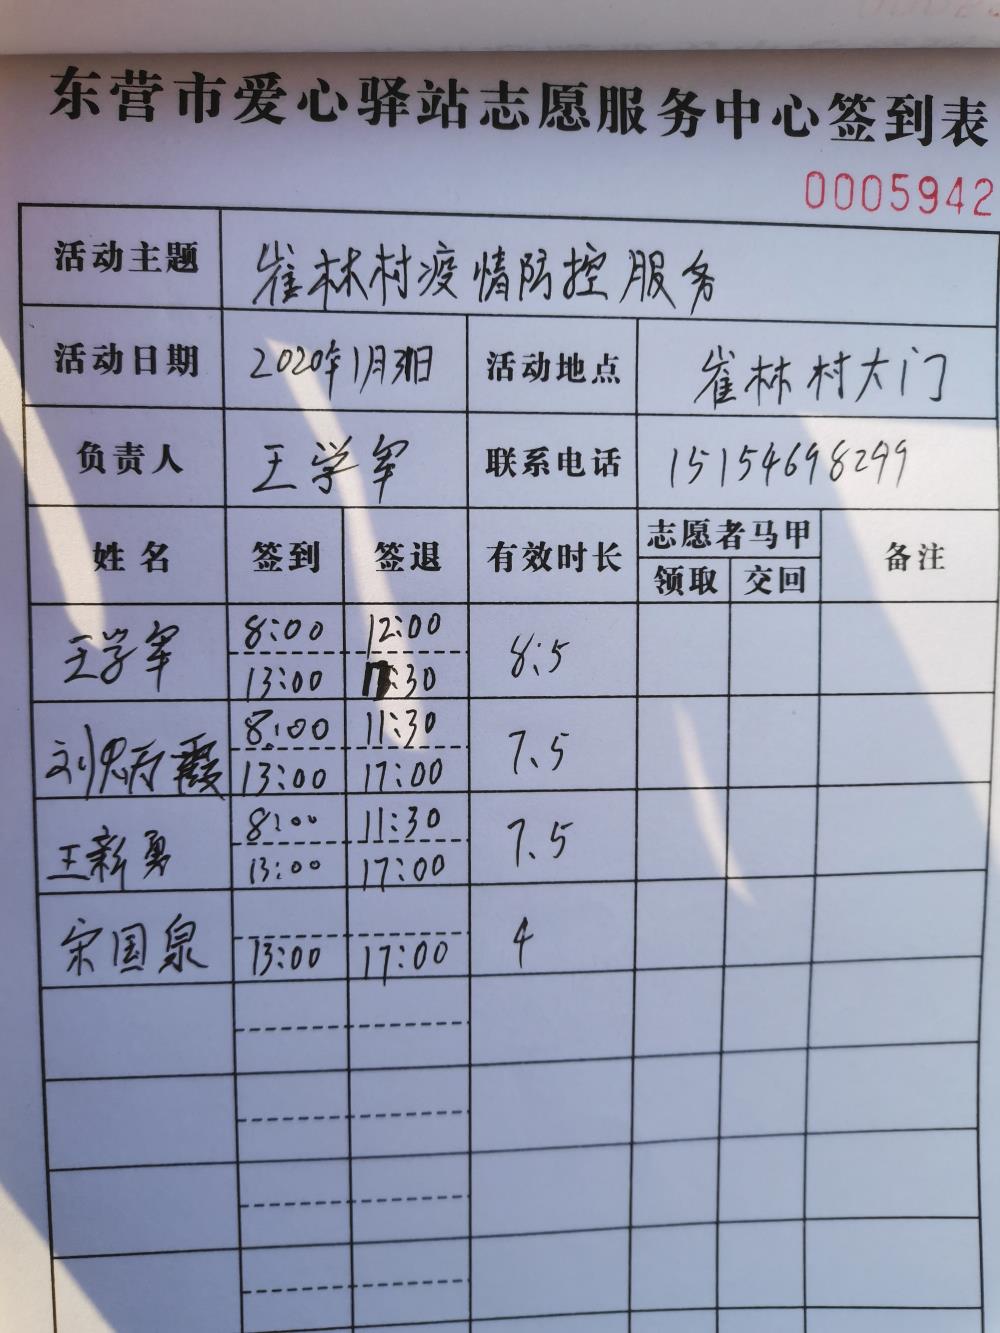 东营市爱心驿站志愿服务中心签到表
0005942
活动主题 崔林村疫情防控服务
活动日期 2020年1月31日 活动地点 崔林村大门
负责人 王学军 联系电话 15154698299
姓名 签到 签退 有效时长 志愿者马甲 备注
领取 交回
王学军 8:00 12:00 8.5
13:00 17:30
刘 霞 8:00 11:30 7.5
13:00 17:00
王新勇 8:00 11:30 7.5
13:00 17:00
宋国泉 4
13:00 17:00